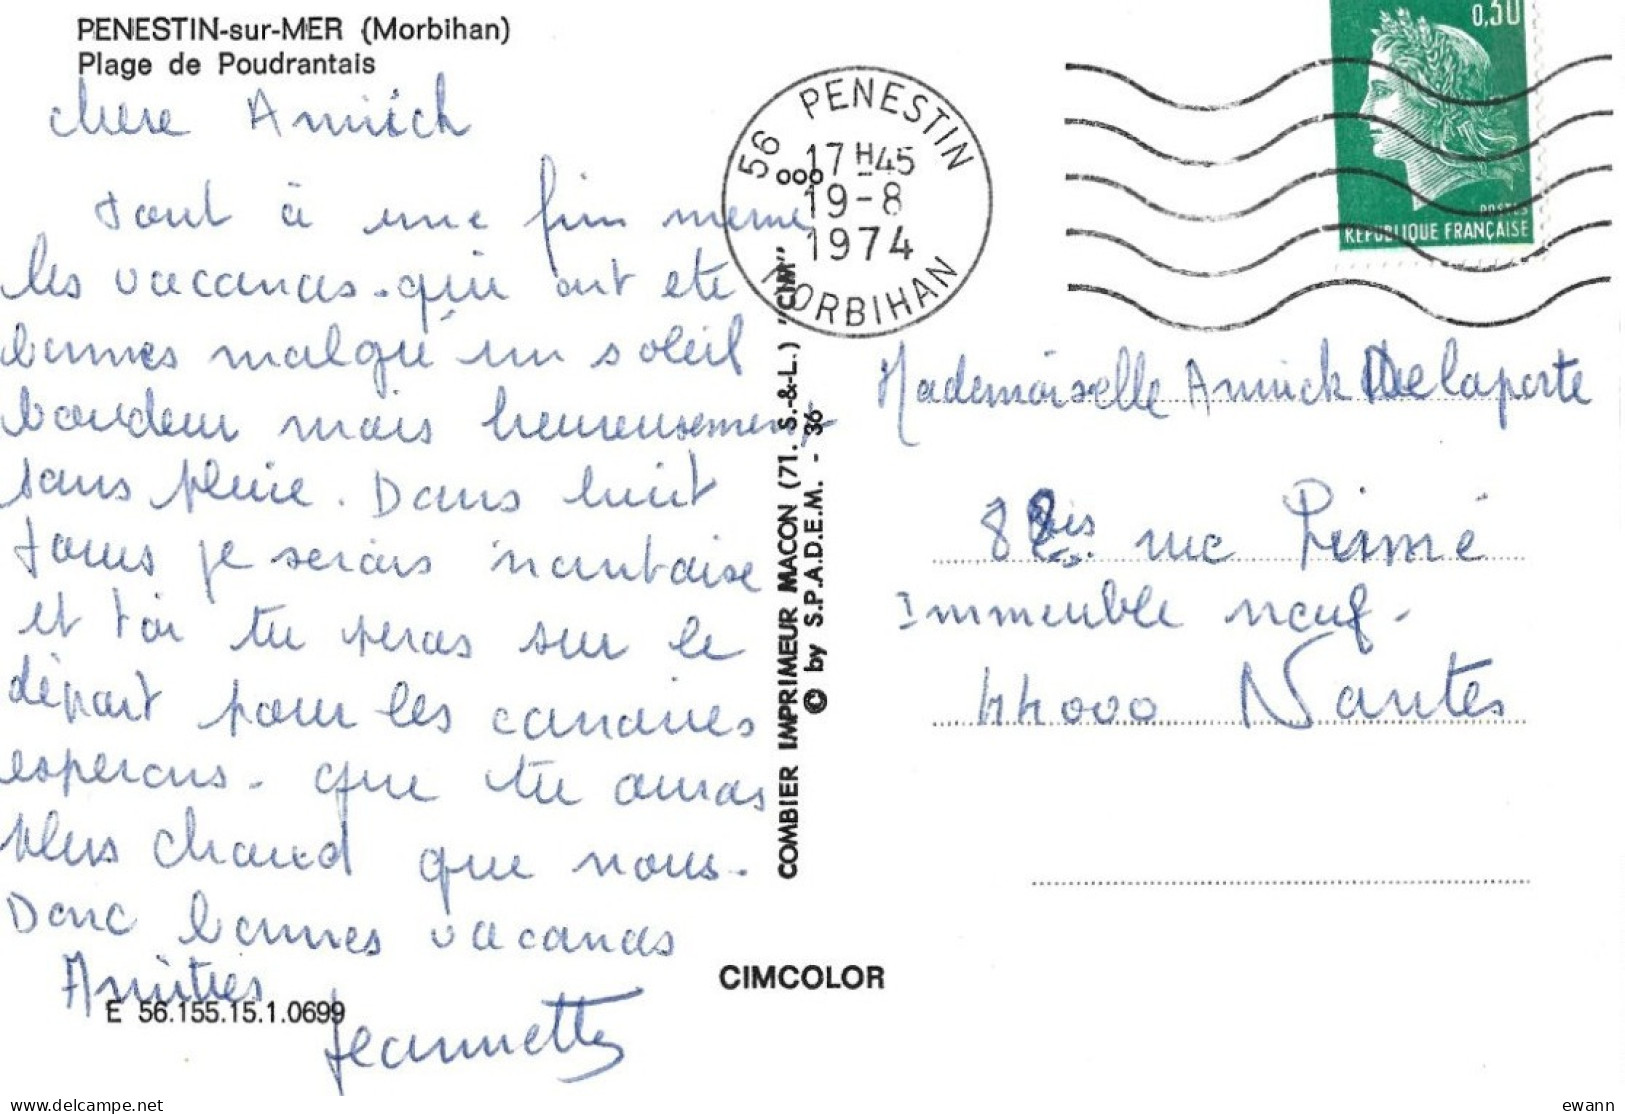 PENESTIN-sur-MER (Morbihan)
Plage de Poudrantais
chere Annick
tout à une fin meme
les vacances. qui ont ete
bonnes malgré un soleil
boudeur mais heureusement
sans pluie. Dans huit
jours je serais nantaise
et toi tu seras sur le
départ pour les canaries
esperons. que tu auras
plus chaud que nous.
Donc bonnes vacances
Amitiés
Jeannette
E 56.155.15.1.0699
COMBIER IMPRIMEUR MACON (71. S.-&-L.) "CIM"
© by S.P.A.D.E.M. - 36
CIMCOLOR
56 PENESTIN
17 H 45
19-8
1974
MORBIHAN
0,30
POSTES
REPUBLIQUE FRANÇAISE
Mademoiselle Annick Delaporte
8 bis rue
Immeuble neuf.
44000 Nantes
delcampe.net
ewann